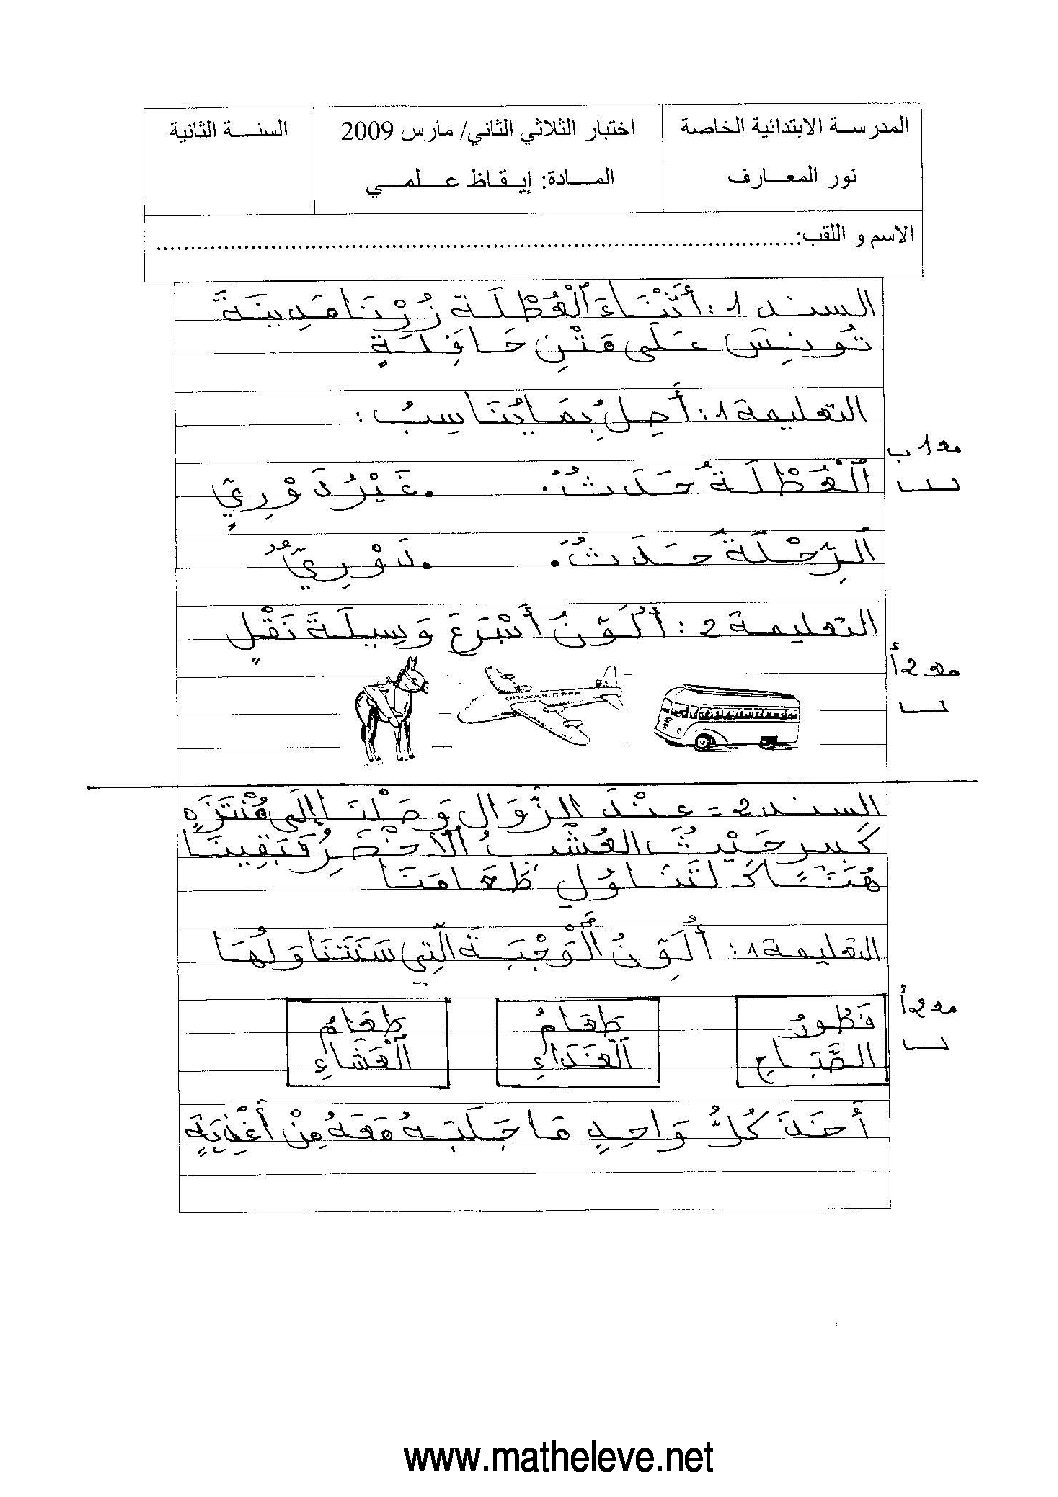 المدرسة الابتدائية الخاصة
نور المعارف
اختبار الثلاثي الثاني/ مارس 2009
المادة: إيقاظ علمي
السنة الثانية
الاسم و اللقب:
السند 1: أَثْنَاءَ الْعُطْلَةِ زُرْنَا مَدِينَةَ
تُونِسَ عَلَى مَتْنِ حَافِلَةٍ
التعليمة 1: أَصِلُ بِمَا يُنَاسِبُ:
مع 1 ب
الْعُطْلَةُ حَدَثٌ. .غَيْرُ دَوْرِيٍّ
الرِّحْلَةُ حَدَثٌ. .دَوْرِيٌّ
التعليمة 2: أُلَوِّنُ أَسْرَعَ وَسِيلَةِ نَقْلٍ
مع 2 أ
السند 2 = عِنْدَ الزَّوَالِ وَصَلْنَا إِلَى مُنْتَزَهٍ
كَبِيرٍ حَيْثُ الْعُشْبُ الْأَخْضَرُ فَبَقِينَا
هُنَاكَ لِتَنَاوُلِ طَعَامِنَا
التعليمة 1: أُلَوِّنُ الْوَجْبَةَ الَّتِي سَنَتَنَاوَلُهَا
مع 2 أ
فَطُورُ الصَّبَاحِ
طَعَامُ الْغَدَاءِ
طَعَامُ الْعَشَاءِ
أَخَذَ كُلُّ وَاحِدٍ مَا جَلَبَهُ مَعَهُ مِنْ أَغْذِيَةٍ
www.matheleve.net